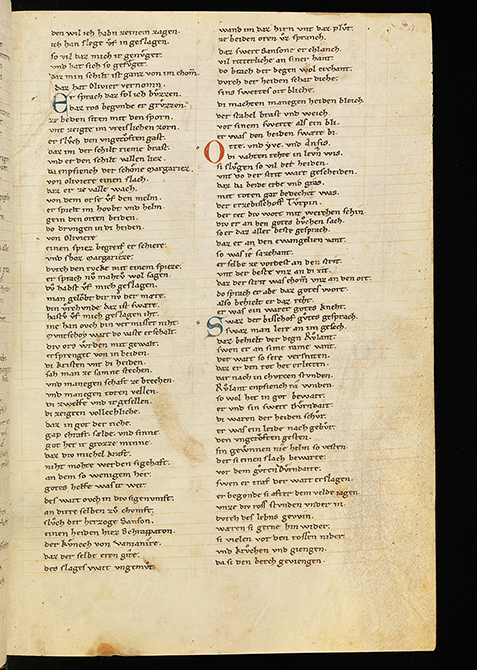 den wil ich habn zeinem zagen.
ich han slege uf in geslagen.
so vil daz mich is genuget.
und hat sich so gefuget.
daz min schilt ist ganz von im chom.
daz hat Olivier vernomn.
Er sprach daz sol ich buzzen.
daz ros begunde er gruzzen.
ze beden siten mit den sporn.
unt zeigte im vreislichen zorn.
er sluch den ungetoufte gast.
daz im der schilt rieme brast.
und er den schilt vallen liez.
da enpfiench der schone margariez.
von oliviere einen slach.
daz er ze valle wach.
von dem orse uf den melm.
er spielt im houbt und helm.
gein den orten beiden.
do drungen in di heiden.
von Oliviere
einen spiez begreif er schiere.
und shoz margarizen.
durch den rucke mit einem spiere.
er sprach nu mahtu wol sagen.
du habst uf mich geslagen.
man gelobt dir nu der mare.
din urchunde daz ist sware.
hastu uf mich geslagen iht.
ine han ouch din vermisset niht.
muntschoy wart do vaste erschalt.
div ors wurden mit gewalt.
ersprenget von in beiden.
di kristen unt di heiden.
sah man ze samne stechen.
und manegen schaft ze brechen.
und manegen toten vellen.
di zwelfe und ir gesellen.
di zeigten vollechliche.
daz in got der riche.
gap chraft. salde. und sinne.
got het ir grozze minne.
daz div michel kraft.
niht mohte werden sigehaft.
an dem so wenigen her.
gotes helfe was ir wer.
des wart ouch in div sigenunft.
an dirre selben zu chunft.
sluch der herzoge Sanson.
einen heiden hiez Eschrapaton.
der kunech von vanianite.
daz der selbe eren gite.
des slages wart ungemut.
wand im daz hirn unt daz plut.
ze beiden oren uz spranch.
daz swert Sansone erchlanch.
vil ritterliche an siner hant.
do brach der begen wol erchant.
durch der heiden schar diche.
sins swertes ort bliche.
di machten manegen heiden bleich.
der stahel brast und weich.
vor sinem swerte als ein bli.
er was den heiden swaere bi.
Otte. und yve. und Ansis.
di vahten rehte in lewen wis.
si slugen so vil der heiden.
unt do der strit wart gescheiden.
daz da beide erbe und gras.
mit toten gar bedechet was.
der erzebischof Turpin.
der tet div wort mit werchen schin.
div er an den gotes buchen sach.
so er daz aller beste gesprach.
daz er an den ewangelien vant.
so was ie sazehant.
er selbe ze vordest an den strit.
unt der beste unz an di zit.
daz der strit was chom unz an den ort.
do sprach er abe daz gotes wort.
also behielt er daz reht.
er was ein warer gotes kneht.
Swaz der bischof gutes gesprach.
swaz man lere an im gesach.
daz behielt der degn Rulant.
swen er an sime rame vant.
der wart so sere versniten.
daz er den tot het erliten.
dar nach in churzen stunden.
Rulant enpfiench nie wunden.
so wol het in got bewart.
er und sin swert Durndart.
di waren der heiden schur.
er was ein leide nach gebur.
den ungetouften gesten.
sin gewunnen nie helm so vesten.
der si einen slach bewarte.
vor dem guten Durndarte.
swen er traf der wart erslagen.
er begonde si after dem velde iagen.
unze div ros stunden under in.
durch des lebns gewin.
waren si gerne hin wider.
si vielen vor den rossen nider.
und kruchen und giengen.
da si den berch geviengen.